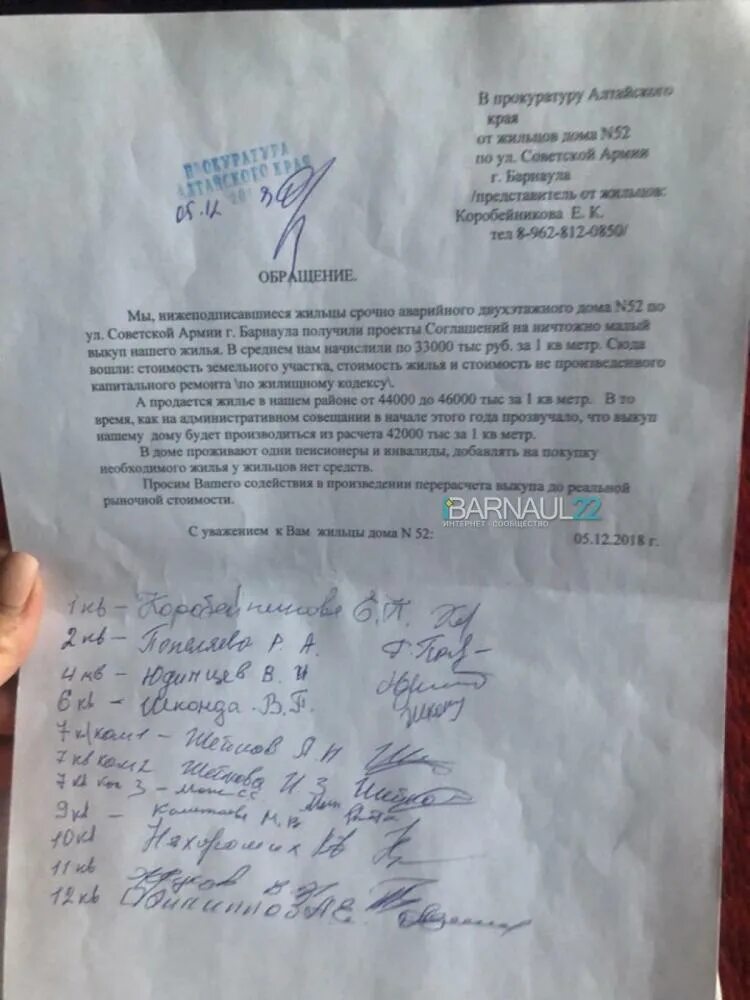 В прокуратуру Алтайского
края
от жильцов дома N52
по ул. Советской Армии
г. Барнаула
/представитель от жильцов:
Коробейникова Е. К.
тел 8-962-812-0850/
ПРОКУРАТУРА
АЛТАЙСКОГО КРАЯ
05.12
ОБРАЩЕНИЕ.
Мы, нижеподписавшиеся жильцы срочно аварийного двухэтажного дома N52 по
ул. Советской Армии г. Барнаула получили проекты Соглашений на ничтожно малый
выкуп нашего жилья. В среднем нам начислили по 33000 тыс руб. за 1 кв метр. Сюда
вошли: стоимость земельного участка, стоимость жилья и стоимость не произведенного
капитального ремонта \по жилищному кодексу\.
А продается жилье в нашем районе от 44000 до 46000 тыс за 1 кв метр. В то
время, как на административном совещании в начале этого года прозвучало, что выкуп
нашему дому будет производиться из расчета 42000 тыс за 1 кв метр.
В доме проживают одни пенсионеры и инвалиды, добавлять на покупку
необходимого жилья у жильцов нет средств.
Просим Вашего содействия в произведении перерасчета выкупа до реальной
рыночной стоимости.
BARNAUL22
ИНТЕРНЕТ - СООБЩЕСТВО
С уважением к Вам жильцы дома N 52:
05.12.2018 г.
1 кв -
2 кв - Р. А.
4 кв - Юдинцев В. И
6 кв - Шконда В.П.
7 кв ком 1 - Шейнов
7 кв ком 2 Шейнова И З
7 кв ком 3 -
9 кв - М. В
10 кв
11 кв Жуков
12 кв